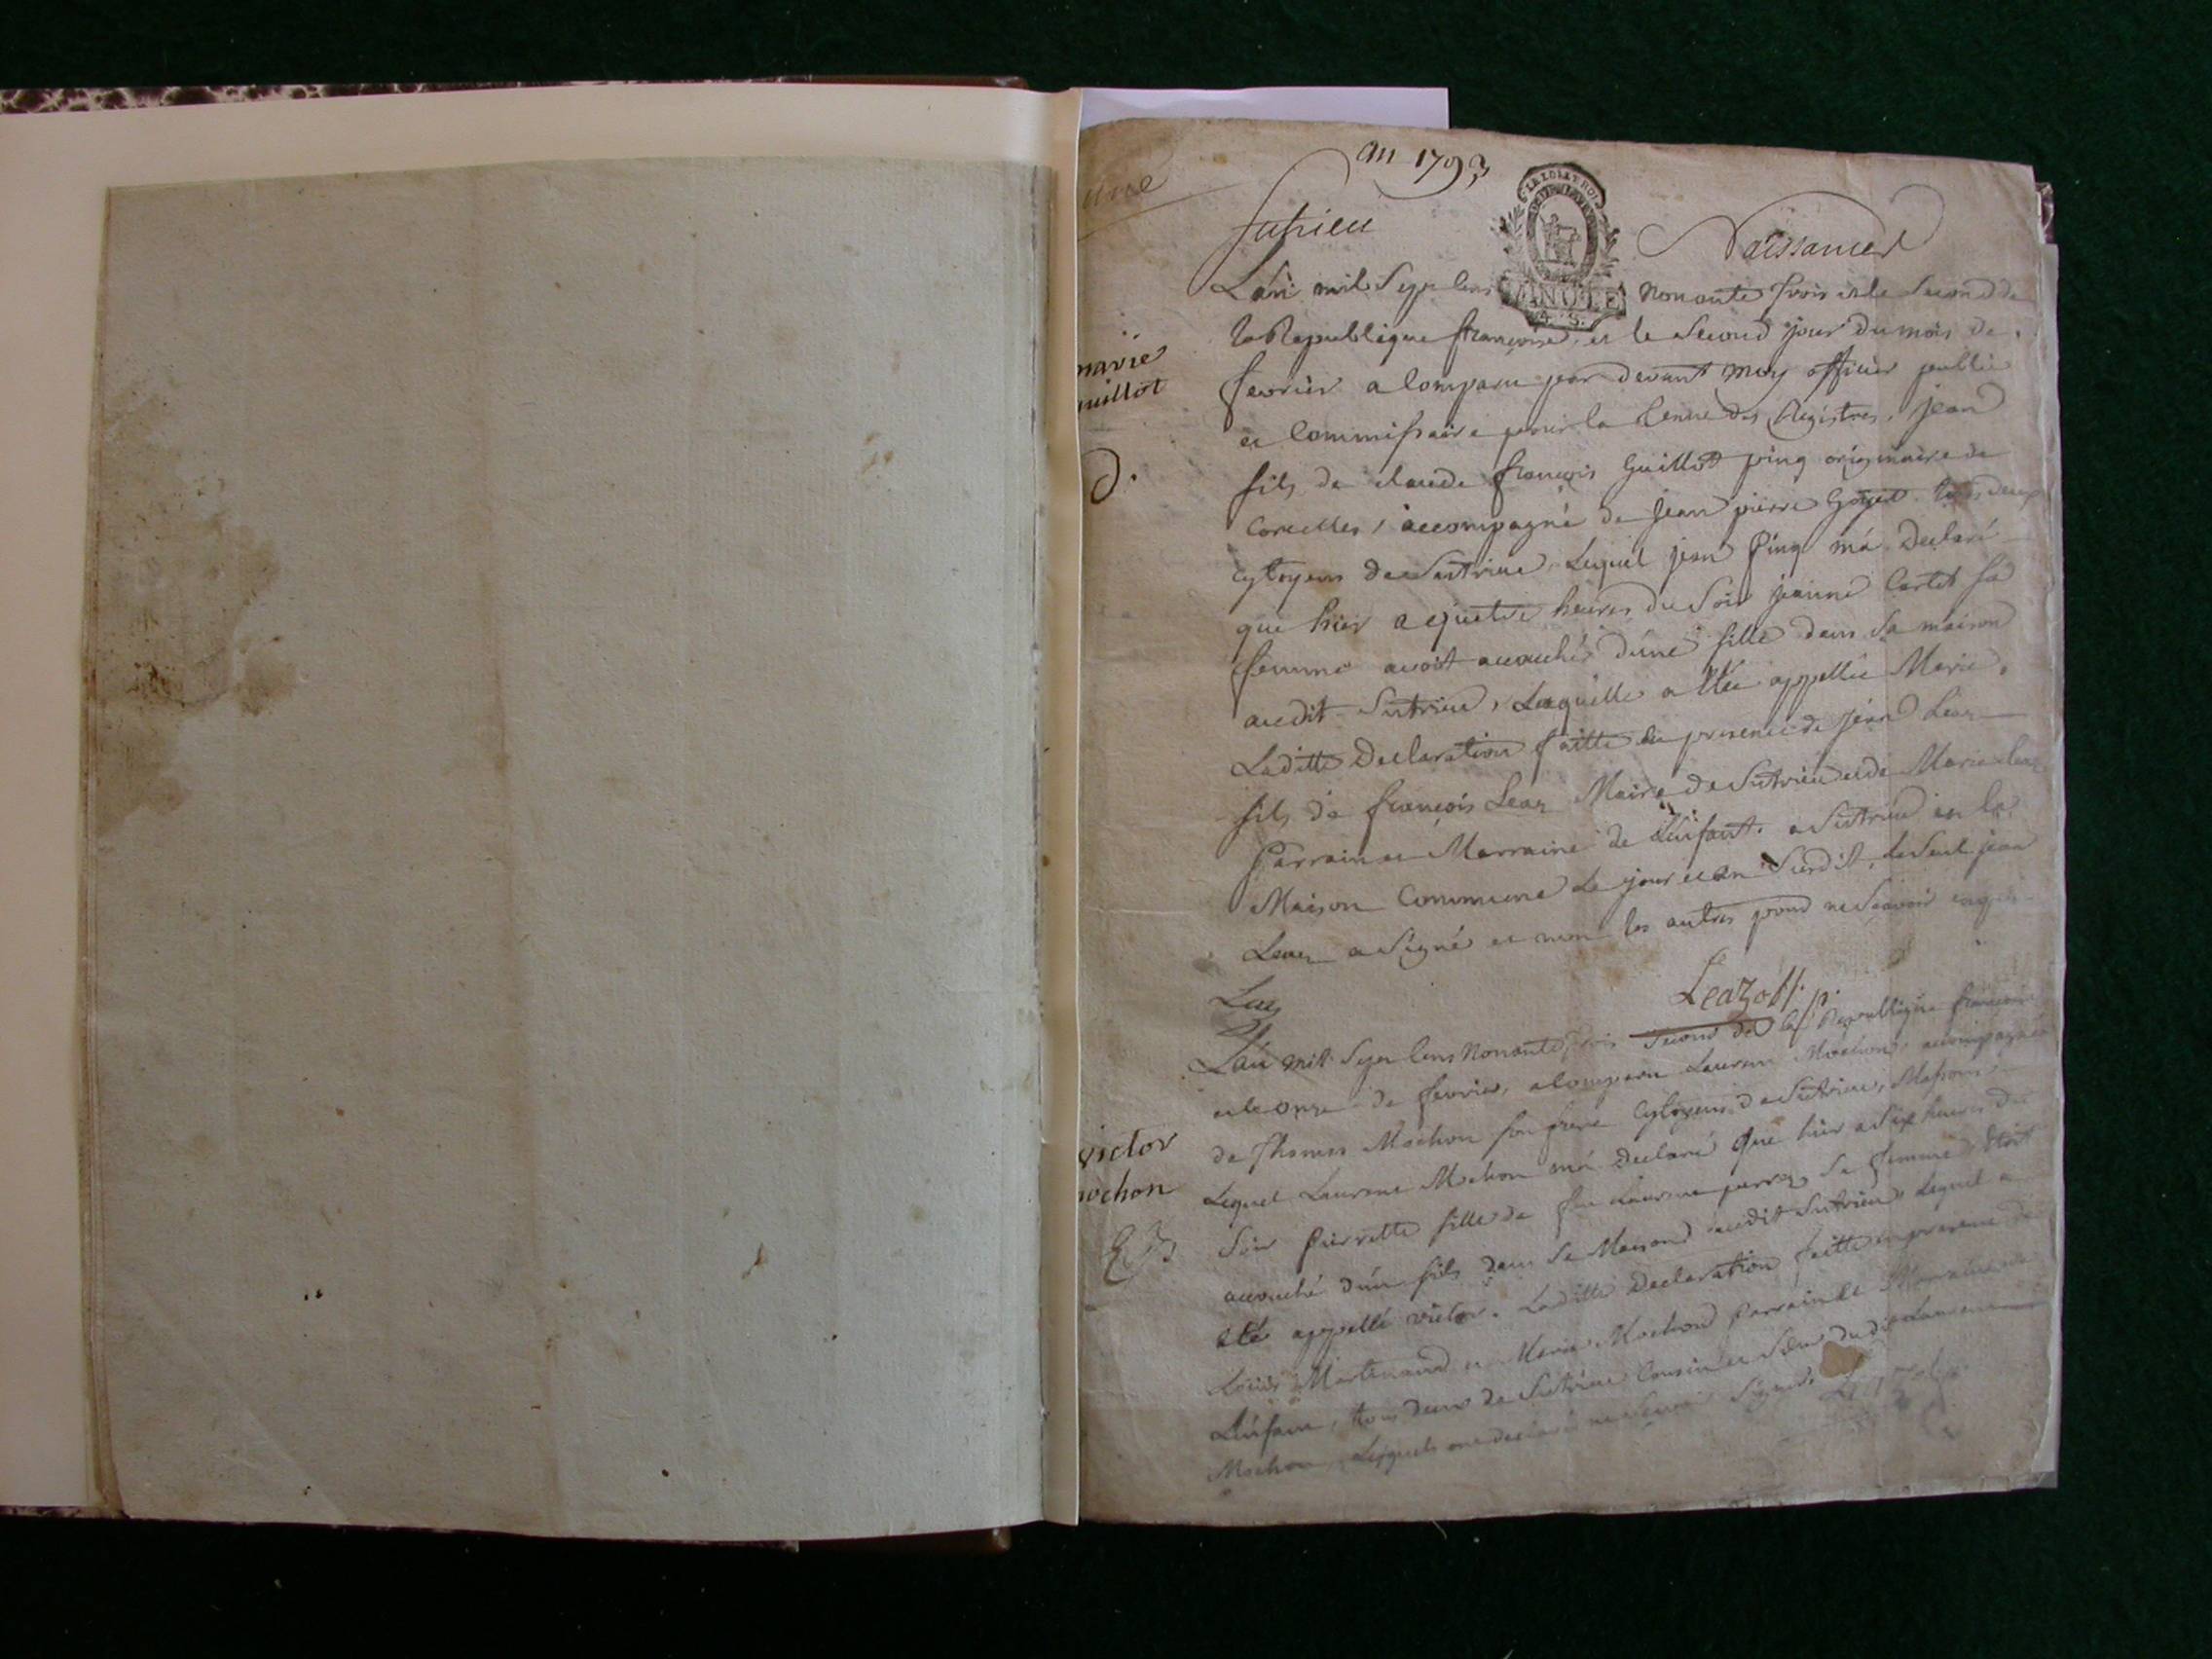 an 1793
une
Sutrieu
Naissances
LA LOI ET LE ROI
MINUTE
4. S.
Lan mil Sept Cens nonante trois et le Second de
la Republique françoise, et le Second jour du mois de
fevrier a Comparu par devant moy officier public
et Commissaire pour la tenue des Registres, jean
fils de claude françois Guillot ping originaire de
Corcelles, accompagné de jean pierre Goyet tous deux
cytoyens de Sutrieu, Lequel jean Ping ma Declaré
que hier a quatre heures du Soir jeanne Cartet Sa
femme avoit accouché d'une fille dans Sa maison
audit Sutrieu, Laquelle a été appellée Marie,
Laditte Declaration faitte en presence de jean Leaz
fils de françois Leaz Maire de Sutrieu et de Marie Leaz
Parrain et Marraine de L'enfant. a Sutrieu en la
Maison Commune Le jour et an Susdit, le Seul jean
Leaz a Signé et non les autres pour ne Scavoir enquis
marie
uillot
d.
Leaz
Leaz off. p.
Lan mil Sept Cens Nonante trois Second de la Republique françoise
et le onze de fevrier, a Comparu Laurent Mochon, accompagné
de Thomas Mochon son frere Cytoyens de Sutrieu, Massons
Lequel Laurent Mochon m'a Declaré que hier a Six heures du
Soir Pierrette fille de feu Laurent Sa femme Etoit
accouché d'un fils dans Sa Maison audit Sutrieu, Lequel a
été appellé victor. Laditte Declaration faitte en presence de
Louis Martinand et Marie Mochon Parrain et Marraine de
L'enfant, tous deux de Sutrieu Cousin et Sœur dudit Laurent
Mochon Lesquels ont declaré ne Scavoir Signer. Leaz off.
victor
ochon